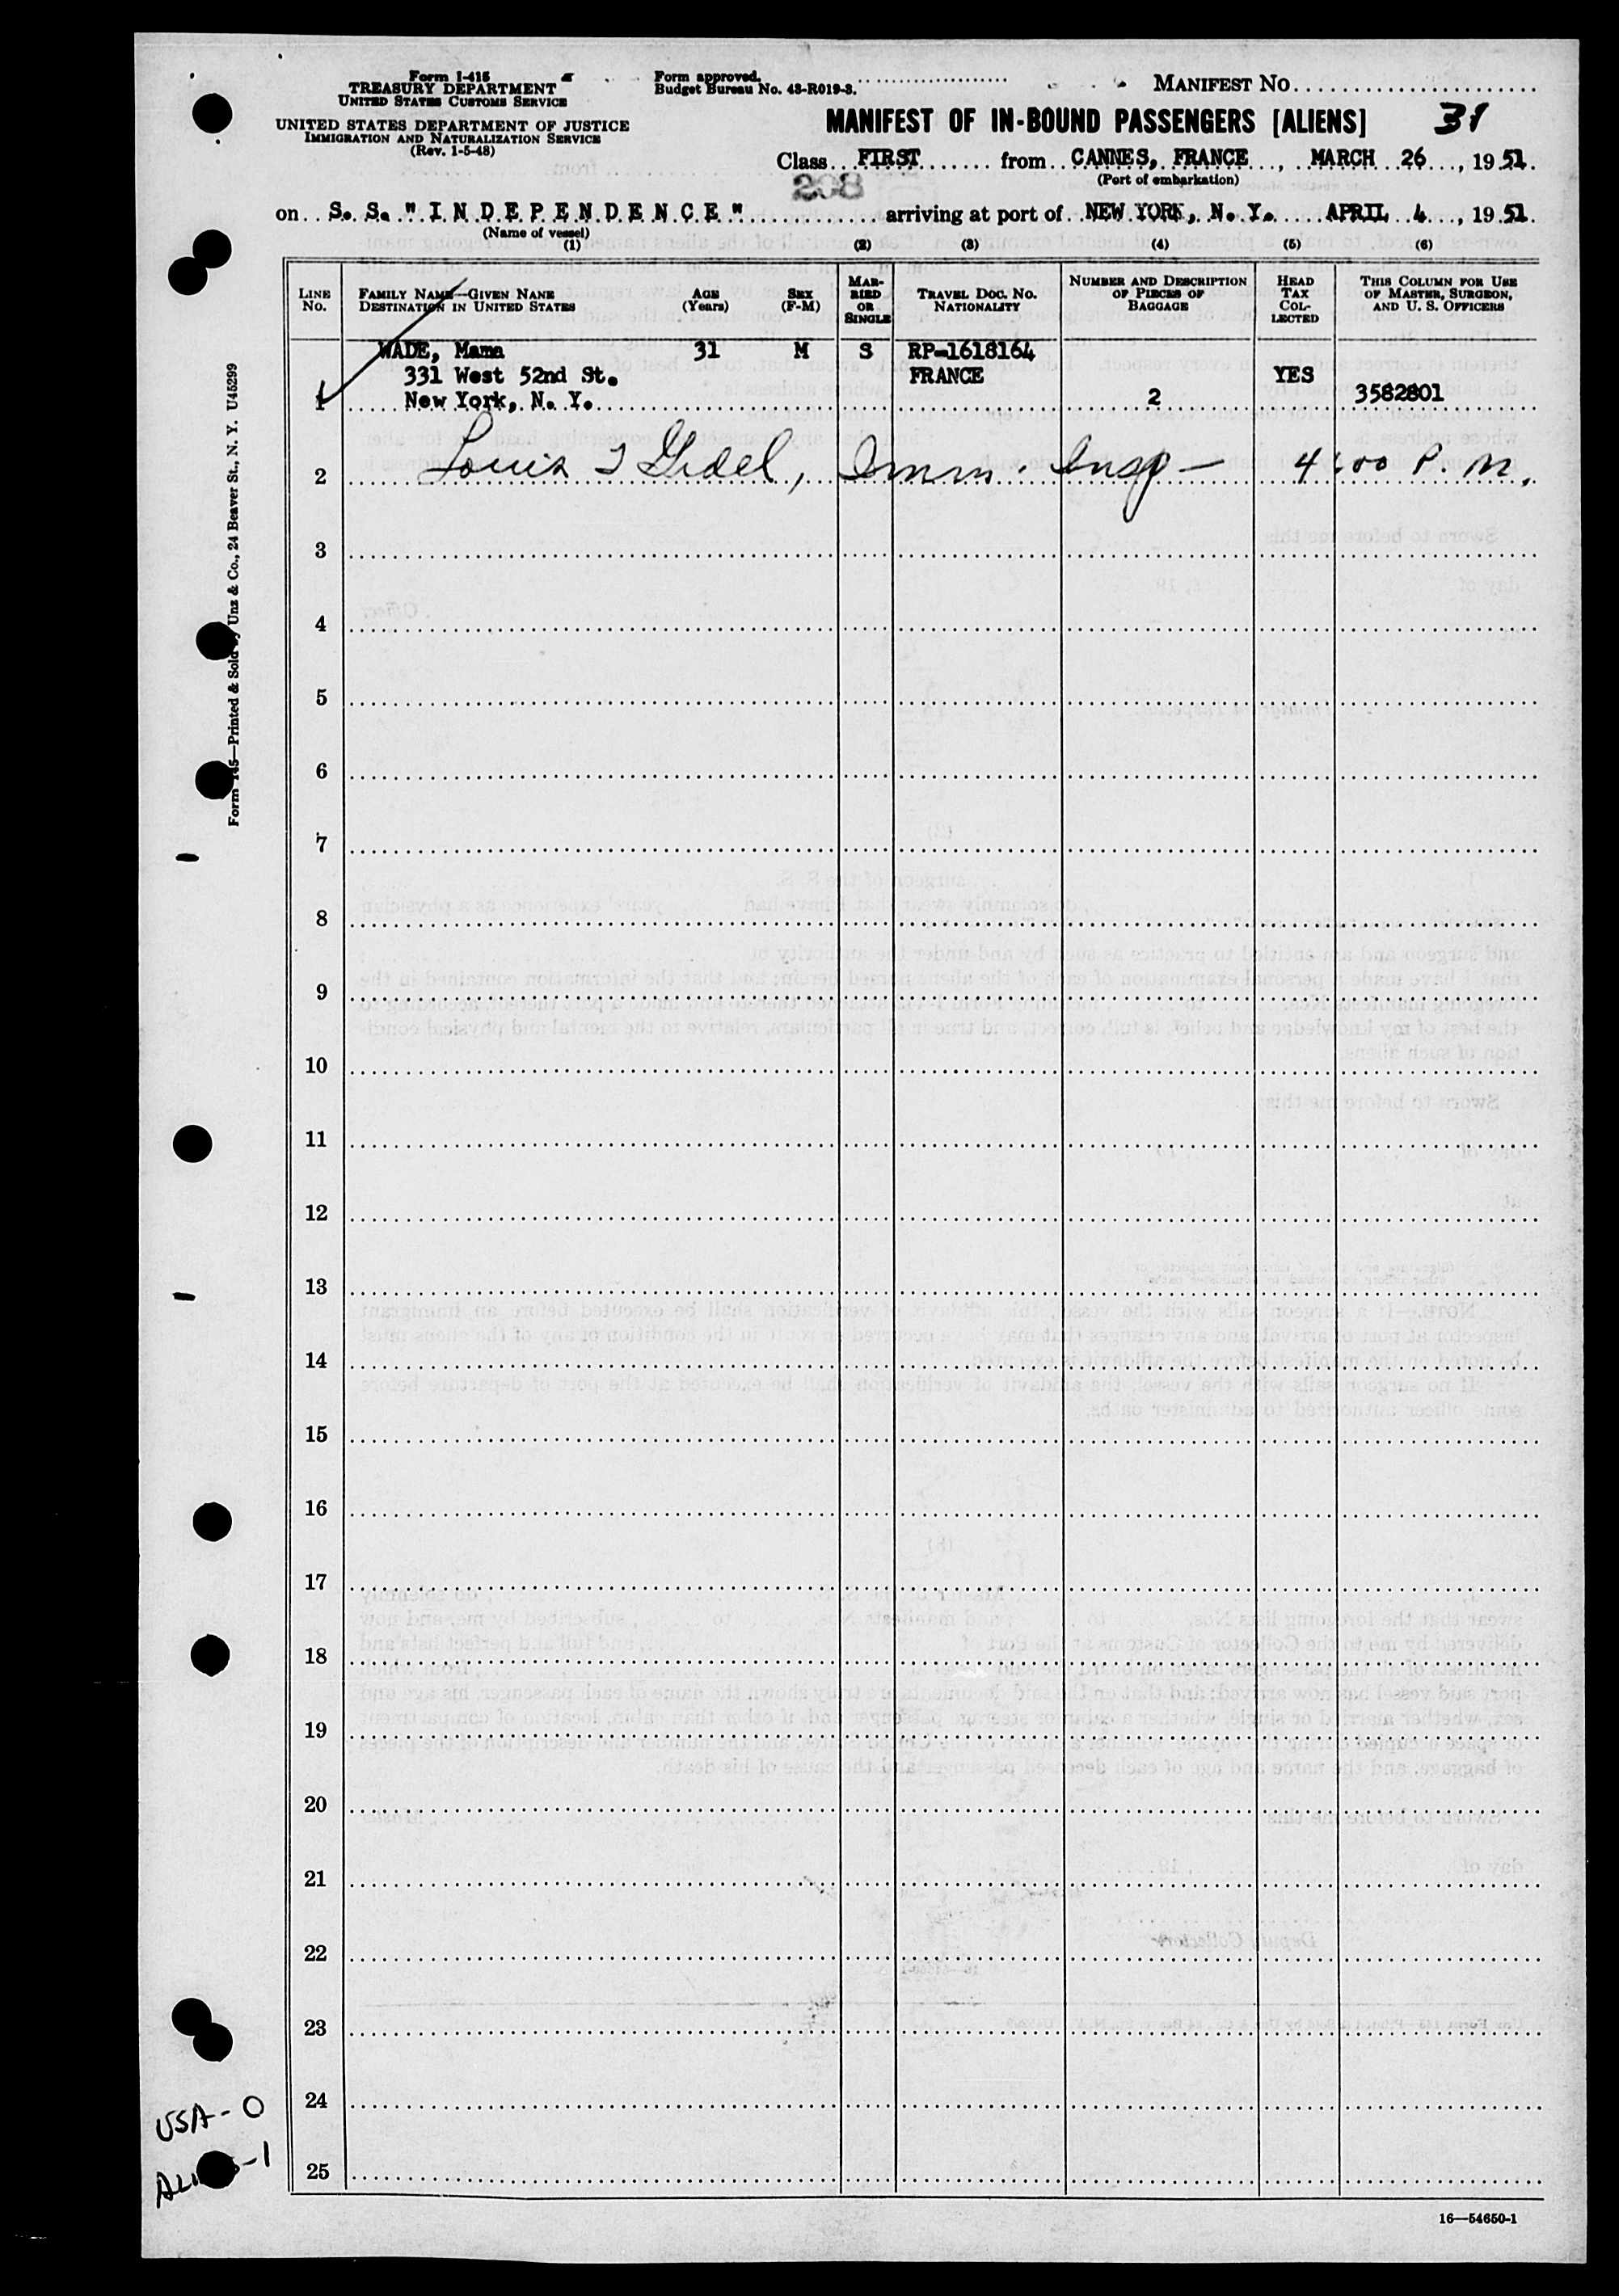 Form I-415
TREASURY DEPARTMENT
UNITED STATES CUSTOMS SERVICE
UNITED STATES DEPARTMENT OF JUSTICE
IMMIGRATION AND NATURALIZATION SERVICE
(Rev. 1-5-48)
Form approved.
Budget Bureau No. 43-R019-3.
MANIFEST NO.
MANIFEST OF IN-BOUND PASSENGERS [ALIENS] 31
Class FIRST from CANNES, FRANCE, MARCH 26, 1951
(Port of embarkation)
208
on S. S. "INDEPENDENCE" arriving at port of NEW YORK, N. Y. APRIL 4, 1951.
(Name of vessel)
(1) (2) (3) (4) (5) (6)
LINE NO.
FAMILY NAME—GIVEN NANE
DESTINATION IN UNITED STATES
AGE (Years)
SEX (F-M)
MARRIED OR SINGLE
TRAVEL DOC. NO.
NATIONALITY
NUMBER AND DESCRIPTION OF PIECES OF BAGGAGE
HEAD TAX COLLECTED
THIS COLUMN FOR USE OF MASTER, SURGEON, AND U. S. OFFICERS
WADE, Mama 31 M S RP-1618164
331 West 52nd St. FRANCE YES
1 New York, N. Y. 2 3582801
2 Louis Imm. Insp — 4:00 P. M.
3
4
5
6
7
8
9
10
11
12
13
14
15
16
17
18
19
20
21
22
23
24
25
16—54650-1
Printed & Sold by Unz & Co., 24 Beaver St., N. Y. U45299
USA - 0
-1